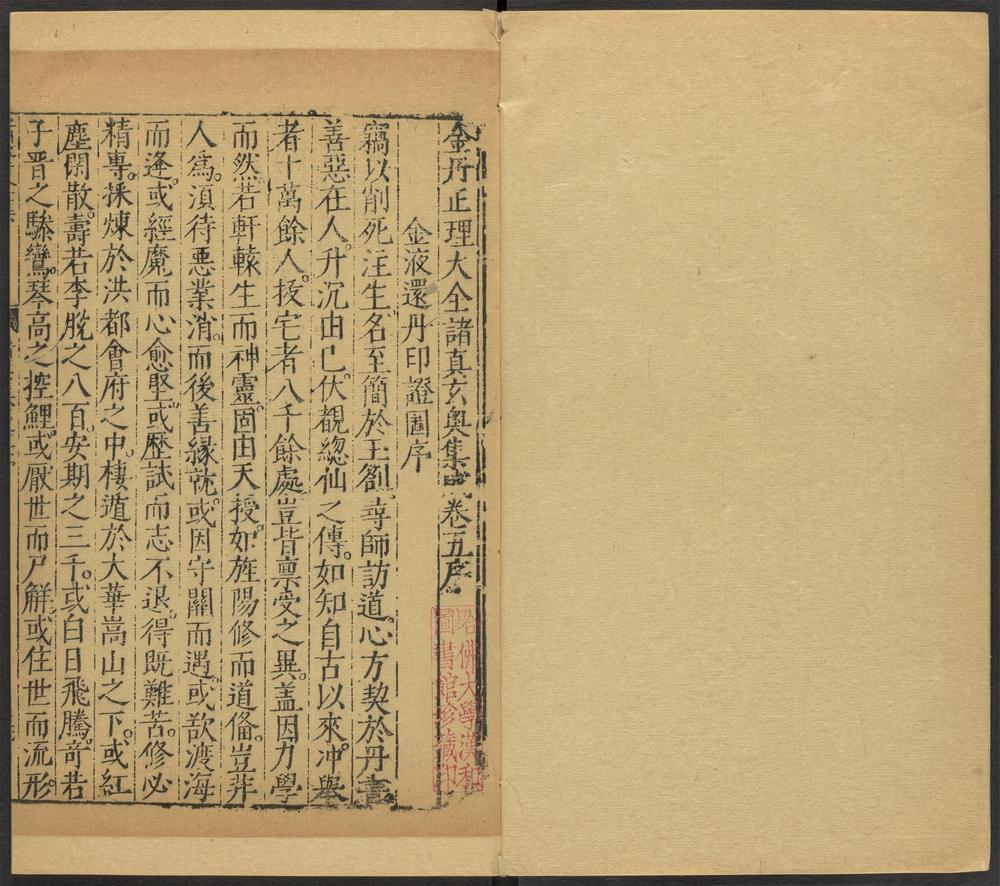 金丹正理大全諸真玄奧集成卷五序
金液還丹印證圖序
竊以削死注生名至簡於王劄尋師訪道心方契於丹書
善惡在人升沉由己伏覩緫仙之傳如知自古以來冲舉
者十萬餘人拔宅者八千餘處豈皆禀受之異盖因力學
而然若軒轅生而神靈固由天授如旌陽修而道俻豈非
人爲須待惡業消而後善緣就或因守關而遇或欲渡海
而逢或經魔而心愈堅或歷試而志不退得既難苦修必
精專採煉於洪都會府之中棲遁於大華嵩山之下或紅
塵閑散壽若李脫之八百安期之三千或白日飛騰竒若
子晋之驂鸞琴高之控鯉或厭世而尸解或住世而流形
哈佛大學漢和
圖書館珍藏印